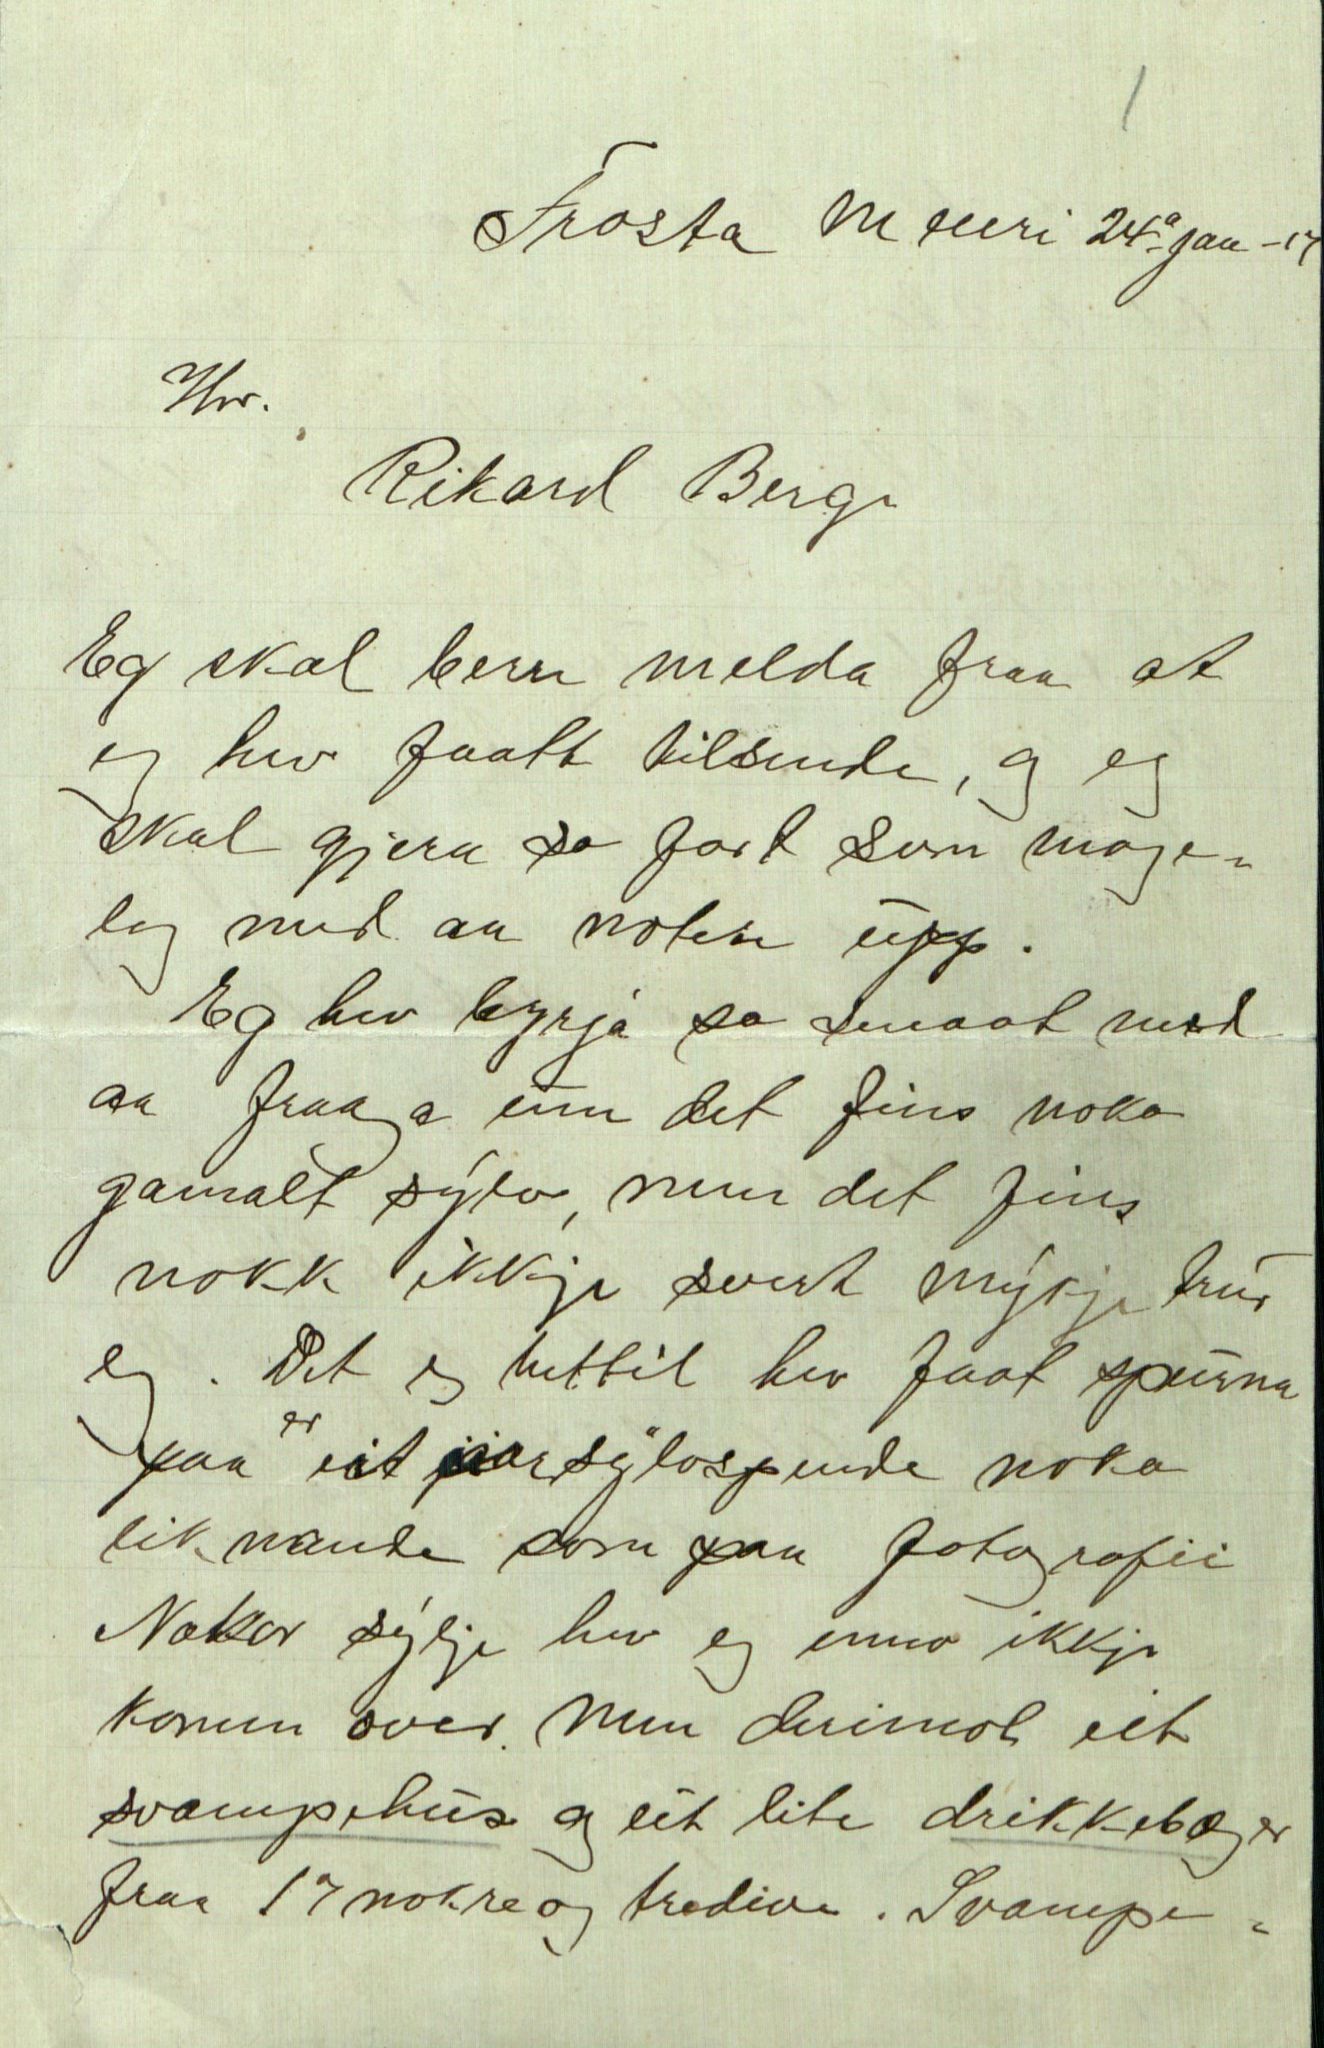 1
Frosta 24a jan - 17
Hr.
Rikard Berge
Eg skal berre melda fraa at
eg hev faatt tilsende, og eg
skal gjera so fort som moge-
leg med aa notere upp.
Eg hev byrja so smaat med
aa fraaga um det fins noko
gamalt sylv, men det fins
nokk ikkje svert mykje trur
eg. Det eg hettil hev faat spurna
paa er eit sylvspende noko
liknande som paa fotografii
Nokor sylje hev eg enno ikkje
komen over. Men derimot eit
svampehus og eit lite drikkebæger
fraa 17 nokre og tredive. Svampe-